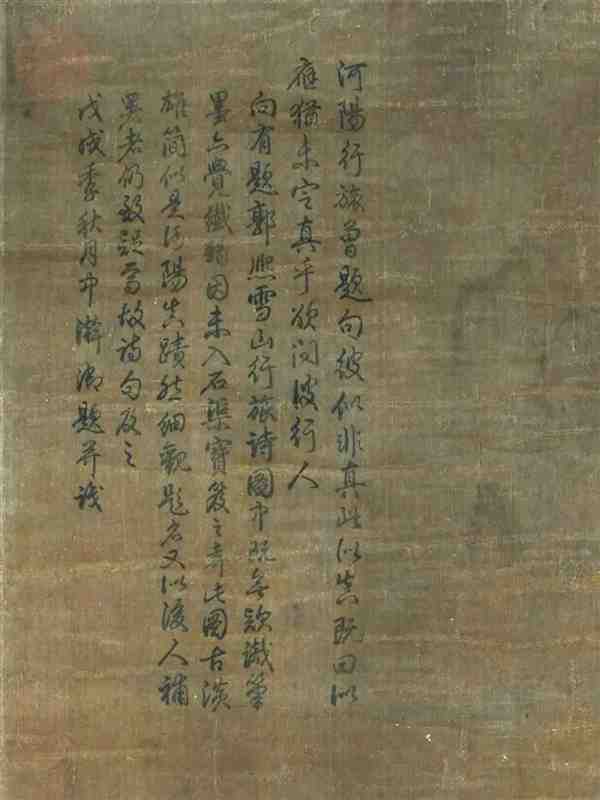 河陽行旅曾題句彼似非真此似真既曰似
應猶未定真乎欲問彼行人
向有題郭熙雪山行旅詩圖中既無款識筆
墨亦覺纖弱因未入石渠寶笈之奇此圖古淡
雄簡似是河陽真蹟然細觀題名又似後人補
者仍致疑焉故詩句及之
戊戌季秋月中澣御題并識